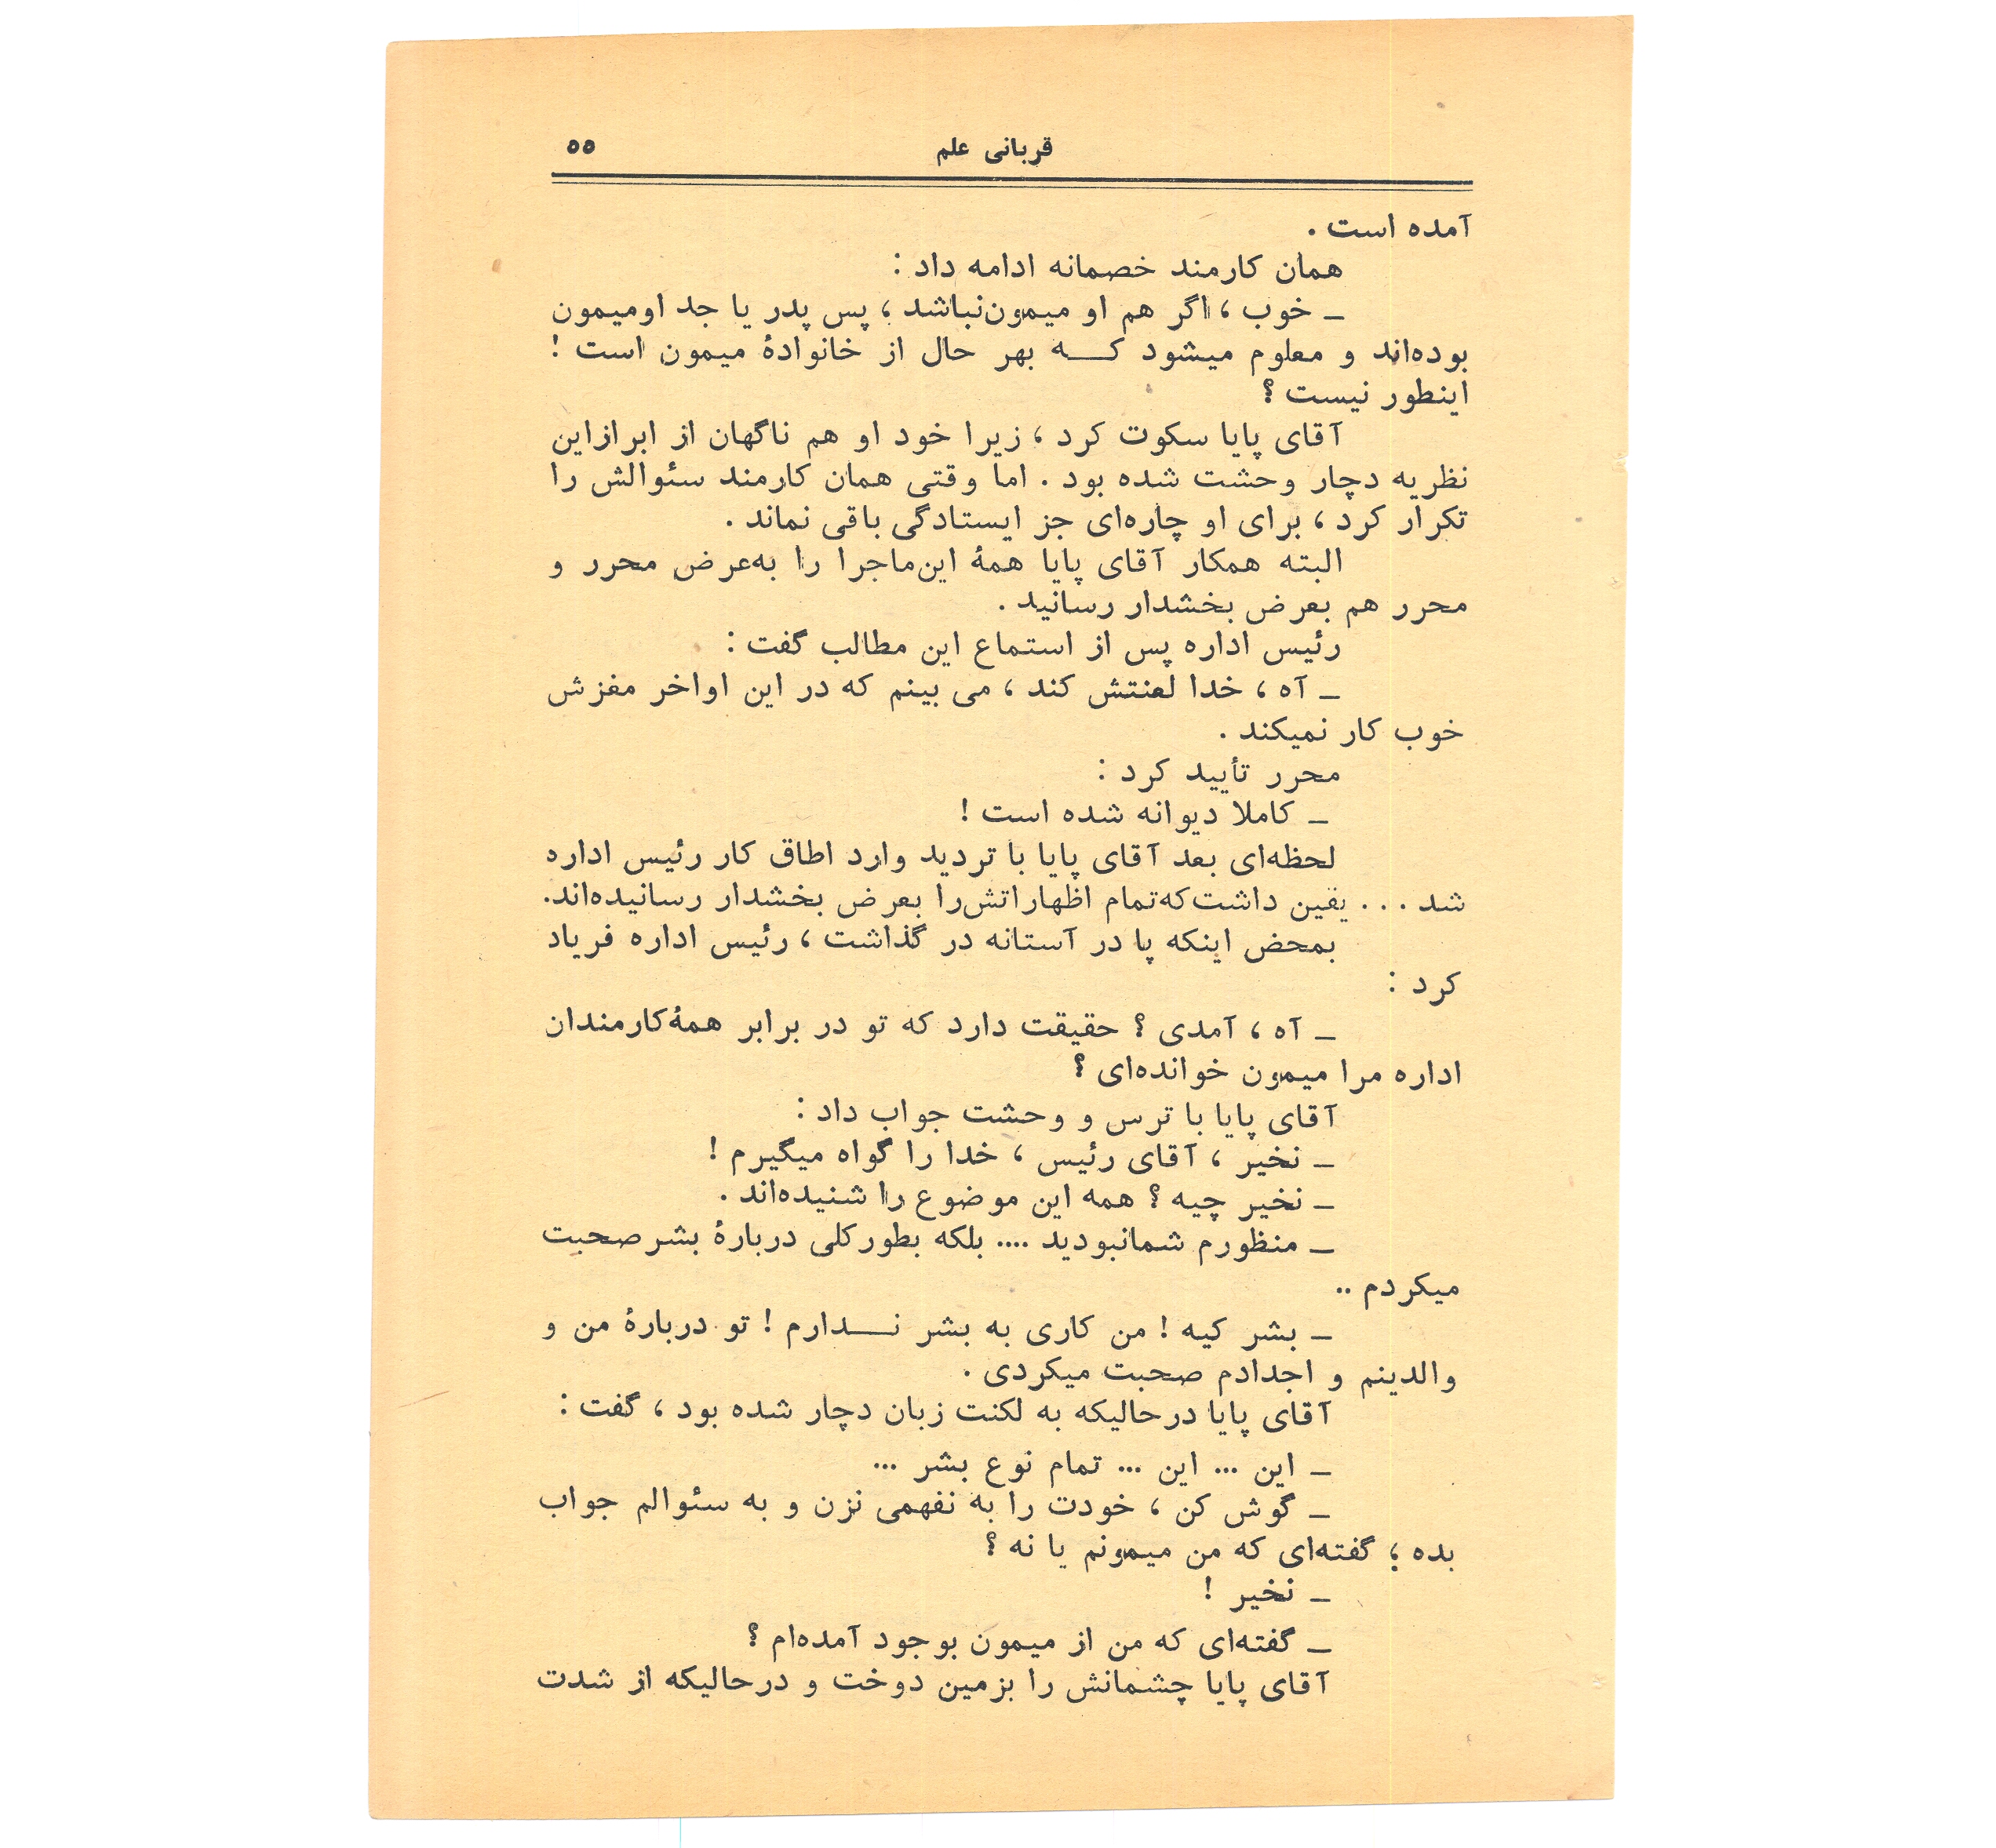 قربانی علم ۵۵
آمده است .
همان کارمند خصمانه ادامه داد :
ـ خوب ، اگر هم او میمون‌نباشد ، پس پدر یا جد اومیمون
بوده‌اند و معلوم میشود کـــه بهر حال از خانوادهٔ میمون است !
اینطور نیست ؟
آقای پایا سکوت کرد ، زیرا خود او هم ناگهان از ابرازاین
نظریه دچار وحشت شده بود . اما وقتی همان کارمند سئوالش را
تکرار کرد ، برای او چاره‌ای جز ایستادگی باقی نماند .
البته همکار آقای پایا همهٔ این‌ماجرا را به‌عرض محرر و
محرر هم بعرض بخشدار رسانید .
رئیس اداره پس از استماع این مطالب گفت :
ـ آه ، خدا لعنتش کند ، می بینم که در این اواخر مغزش
خوب کار نمیکند .
محرر تأیید کرد :
ـ کاملا دیوانه شده است !
لحظه‌ای بعد آقای پایا با تردید وارد اطاق کار رئیس اداره
شد . . . یقین داشت‌که‌تمام اظهاراتش‌را بعرض بخشدار رسانیده‌اند.
بمحض اینکه پا در آستانه در گذاشت ، رئیس اداره فریاد
کرد :
ـ آه ، آمدی ؟ حقیقت دارد که تو در برابر همهٔ‌کارمندان
اداره مرا میمون خوانده‌ای ؟
آقای پایا با ترس و وحشت جواب داد :
ـ نخیر ، آقای رئیس ، خدا را گواه میگیرم !
ـ نخیر چیه ؟ همه این موضوع را شنیده‌اند .
ـ منظورم شمانبودید .... بلکه بطورکلی دربارهٔ بشرصحبت
میکردم ..
ـ بشر کیه ! من کاری به بشر نـــدارم ! تو دربارهٔ من و
والدینم و اجدادم صحبت میکردی .
آقای پایا درحالیکه به لکنت زبان دچار شده بود ، گفت :
ـ این ... این ... تمام نوع بشر ...
ـ گوش کن ، خودت را به نفهمی نزن و به سئوالم جواب
بده ؛ گفته‌ای که من میمونم یا نه ؟
ـ نخیر !
ـ گفته‌ای که من از میمون بوجود آمده‌ام ؟
آقای پایا چشمانش را بزمین دوخت و درحالیکه از شدت